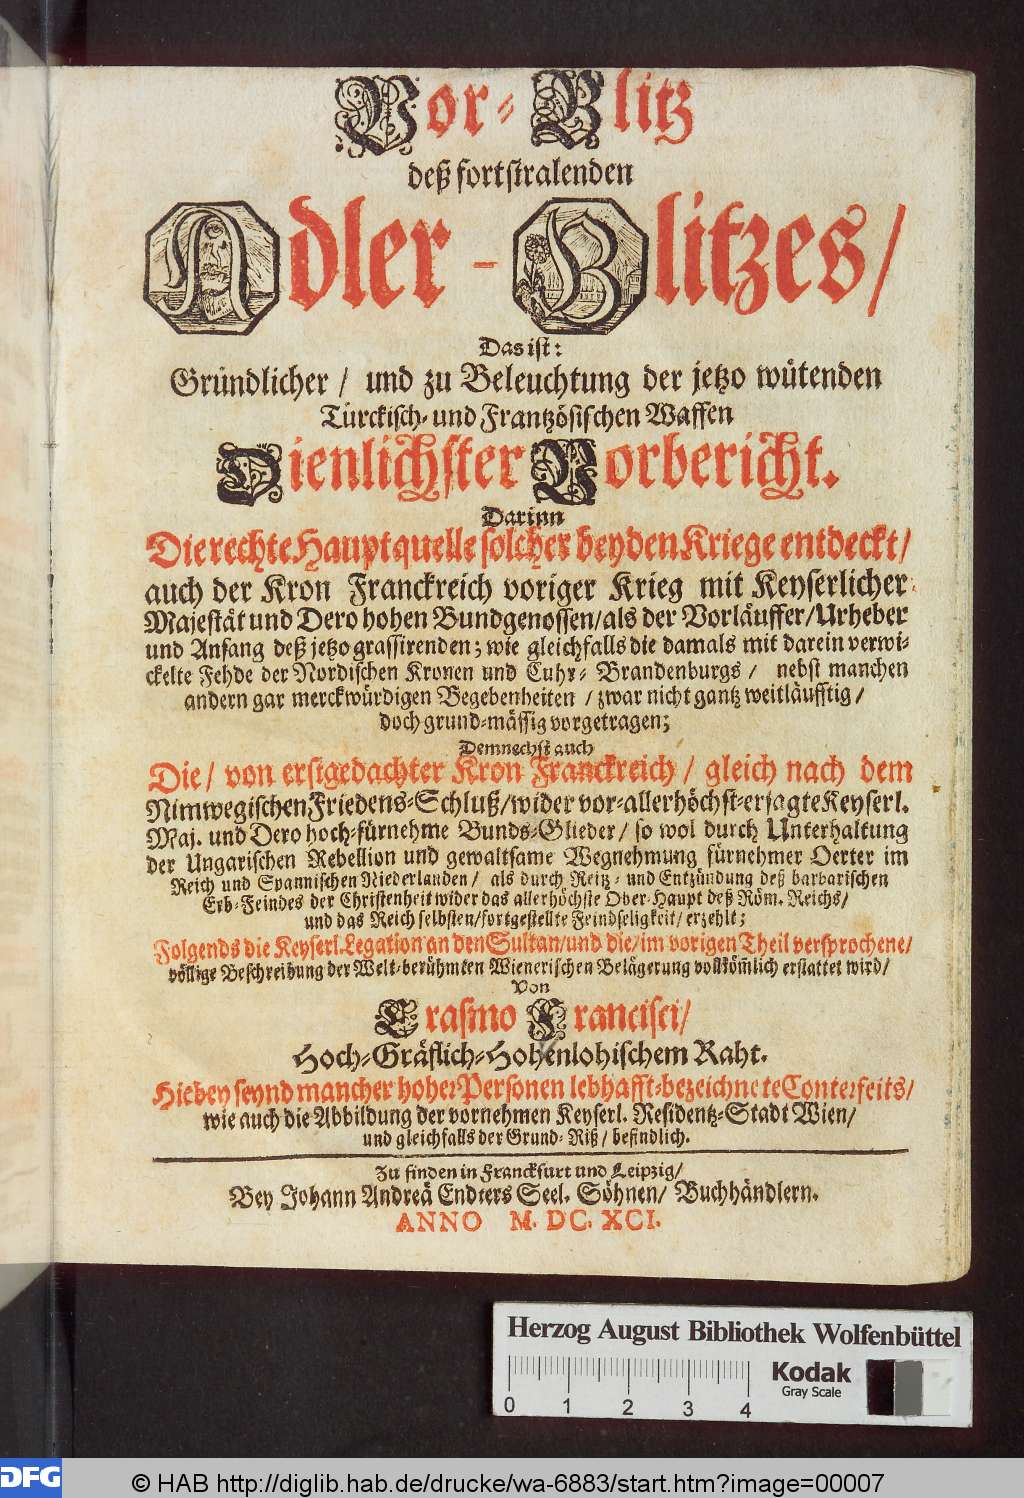 Vor-Blitz
deß fortstralenden
Adler-Blitzes/
Das ist:
Gründlicher / und zu Beleuchtung der jetzo wütenden
Türckisch- und Frantzösischen Waffen
Dienlichster Vorbericht.
Darinn
Die rechte Hauptquelle solcher beyden Kriege entdeckt/
auch der Kron Franckreich voriger Krieg mit Keyserlicher
Majestät und Dero hohen Bundgenossen/als der Vorläuffer/Urheber
und Anfang deß jetzo grassirenden; wie gleichfalls die damals mit darein verwi-
ckelte Fehde der Nordischen Kronen und Cuhr-Brandenburgs / nebst manchen
andern gar merckwürdigen Begebenheiten / zwar nicht gantz weitläufftig /
doch grund-mässig vorgetragen;
Demnechst auch
Die/ von erstgedachter Kron Franckreich/ gleich nach dem
Nimwegischen Friedens-Schluß/wider vor-allerhöchst-ersagte Keyserl.
Maj. und Dero hoch-fürnehme Bunds-Glieder/ so wol durch Unterhaltung
der Ungarischen Rebellion und gewaltsame Wegnehmung fürnehmer Oerter im
Reich und Spannischen Niederlanden/ als durch Reitz- und Entzündung deß barbarischen
Erb-Feindes der Christenheit wider das allerhöchste Ober-Haupt deß Röm. Reichs/
und das Reich selbsten/fortgestellte Feindseligkeit/ erzehlt;
Folgends die Keyserl. Legation an den Sultan/und die/im vorigen Theil versprochene/
völlige Beschreibung der Welt-berühmten Wienerischen Belägerung vollkom̃lich erstattet wird/
Von
Erasmo Francisci/
Hoch-Gräflich-Hohenlohischem Raht.
Hiebey seynd mancher hoher Personen lebhafft-bezeichnete Conterfeits/
wie auch die Abbildung der vornehmen Keyserl. Residentz-Stadt Wien/
und gleichfalls der Grund-Riß/ befindlich.
Zu finden in Franckfurt und Leipzig/
Bey Johann Andreä Endters Seel. Söhnen/ Buchhändlern.
ANNO M. DC. XCI.
Herzog August Bibliothek Wolfenbüttel
Kodak
Gray Scale
0 1 2 3 4
DFG © HAB http://diglib.hab.de/drucke/wa-6883/start.htm?image=00007